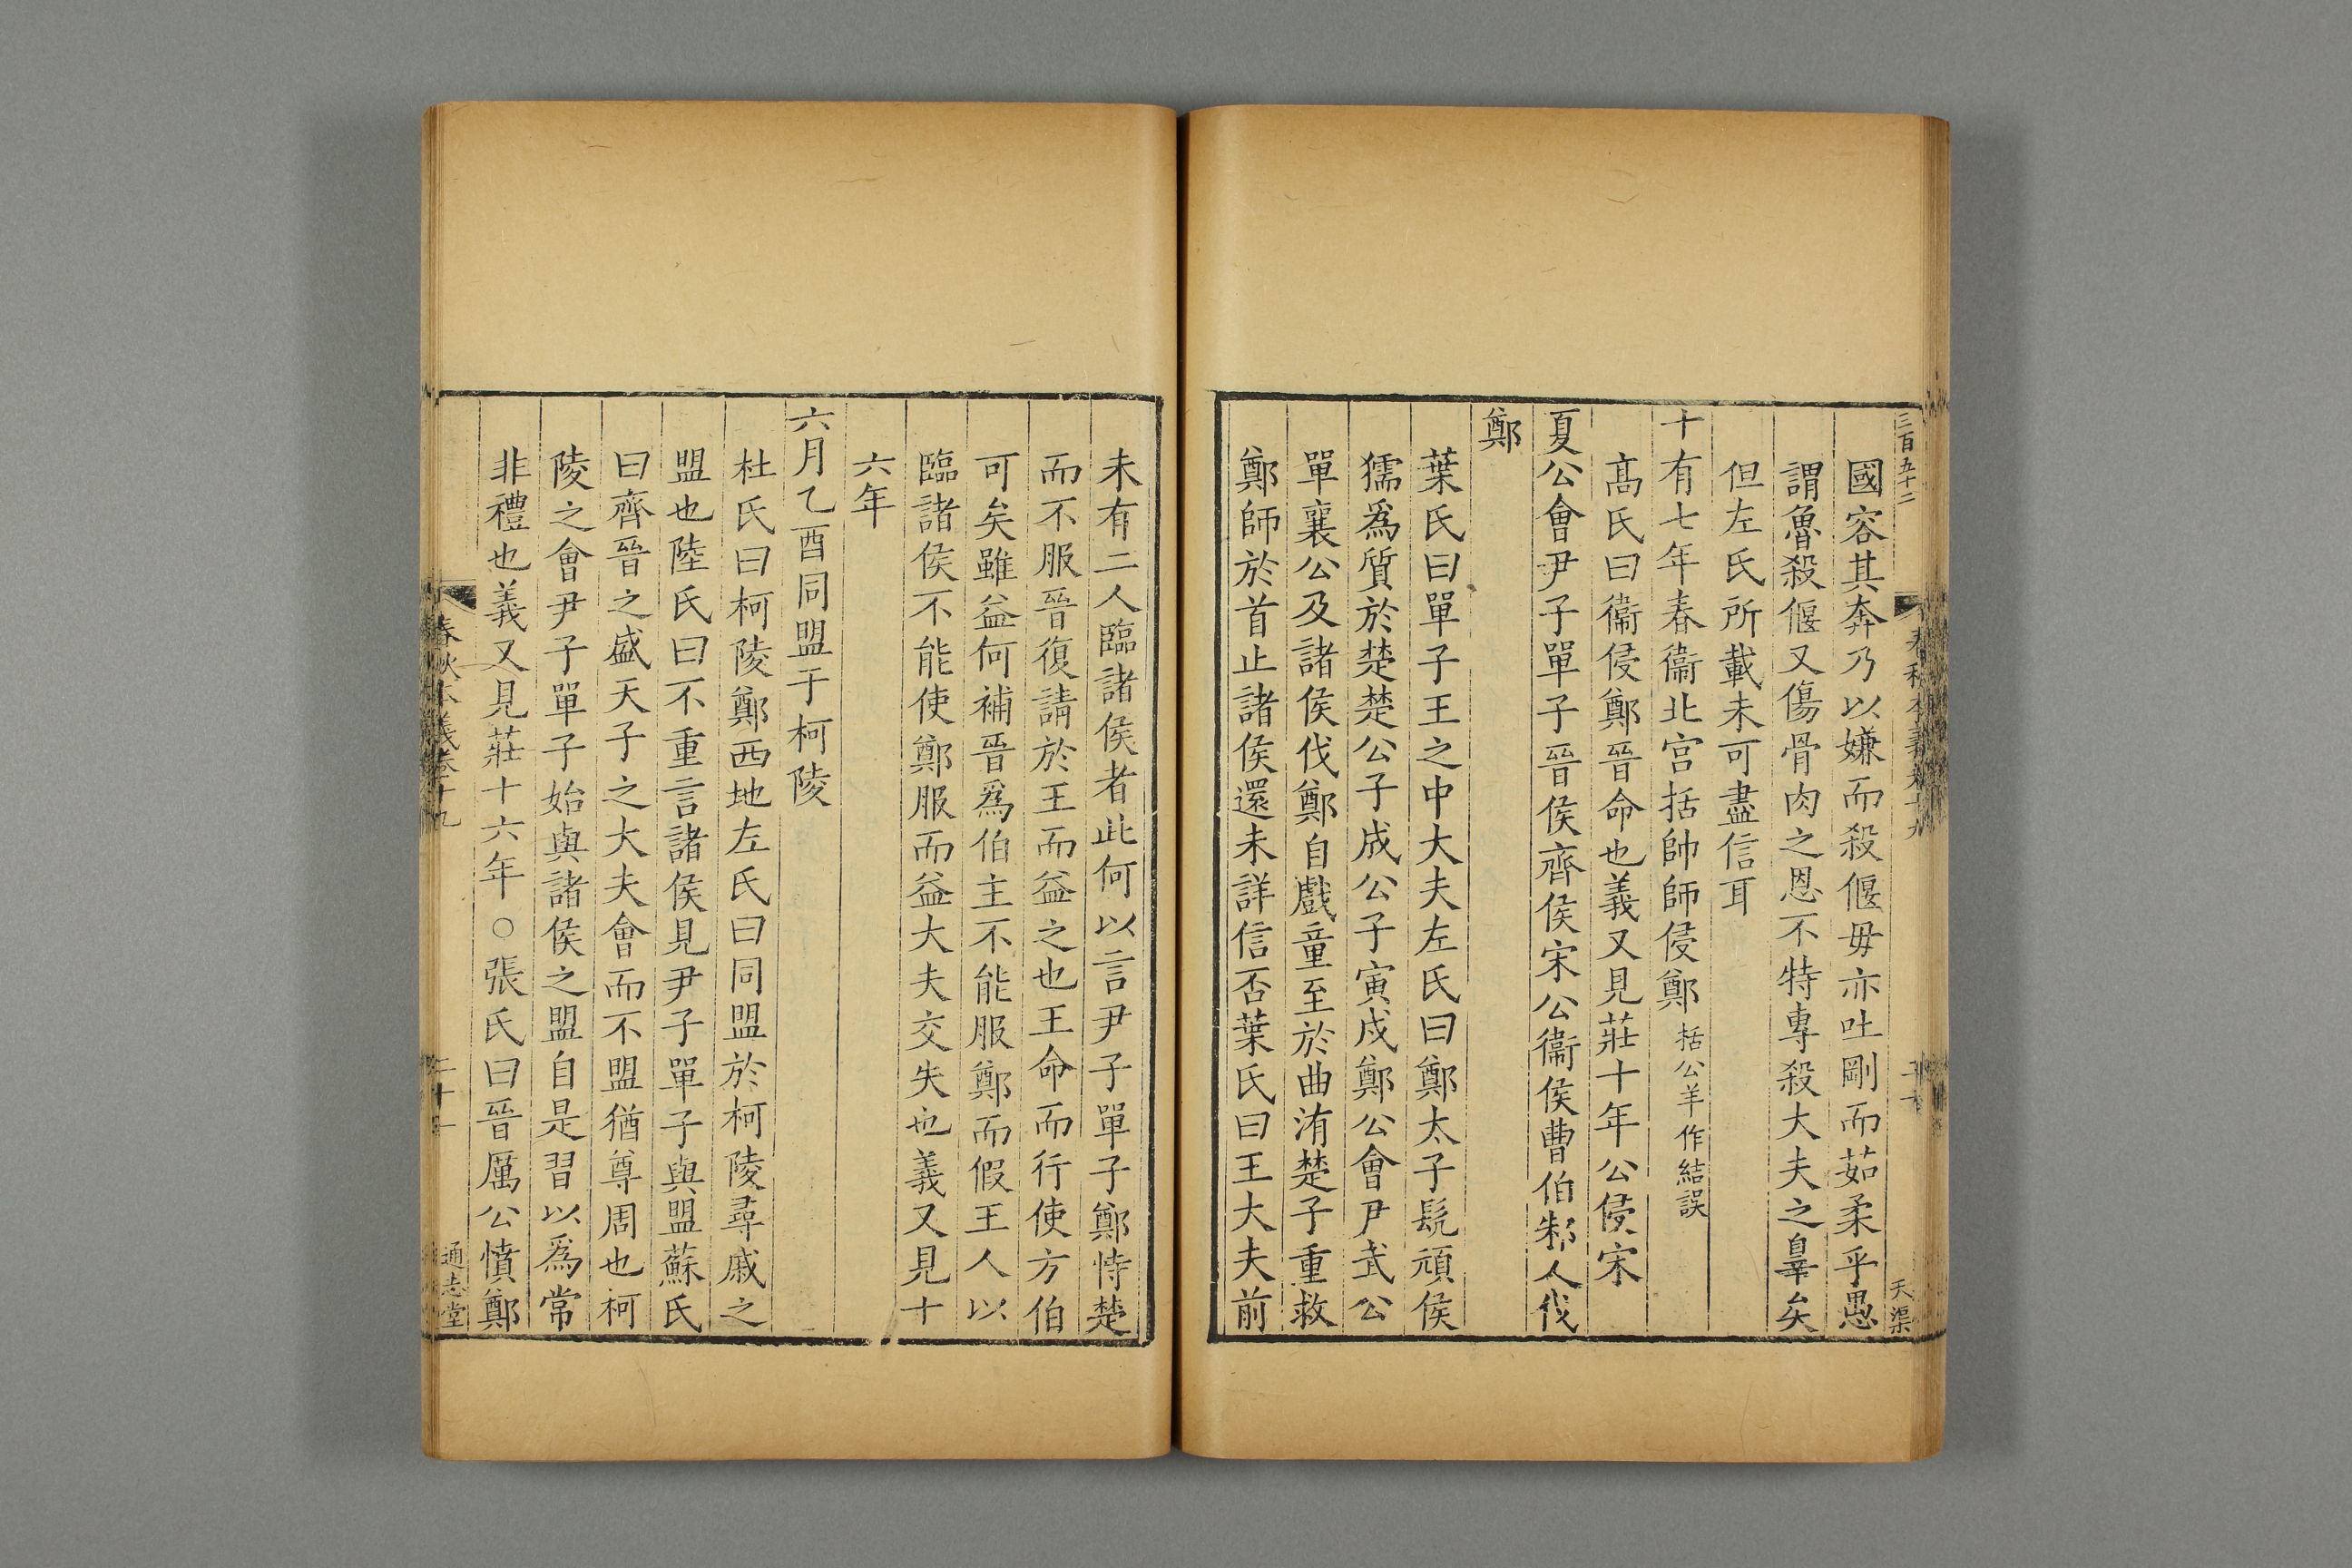 三百五十二
春秋本義卷十九
天渠
國容其奔乃以嫌而殺偃毋亦吐剛而茹柔乎愚
謂魯殺偃又傷骨肉之恩不特專殺大夫之辠矣
但左氏所載未可盡信耳
十有七年春衞北宫括帥師侵鄭括公羊作結誤
髙氏曰衞侵鄭晉命也義又見莊十年公侵宋
夏公會尹子單子晉侯齊侯宋公衞侯曹伯邾人伐
鄭
葉氏曰單子王之中大夫左氏曰鄭太子髠頑侯
獳爲質於楚楚公子成公子寅戍鄭公會尹武公
單襄公及諸侯伐鄭自戲童至於曲洧楚子重救
鄭師於首止諸侯還未詳信否葉氏曰王大夫前
未有二人臨諸侯者此何以言尹子單子鄭恃楚
而不服晉復請於王而益之也王命而行使方伯
可矣雖益何補晉爲伯主不能服鄭而假王人以
臨諸侯不能使鄭服而益大夫交失也義又見十
六年
六月乙酉同盟于柯陵
杜氏曰柯陵鄭西地左氏曰同盟於柯陵尋戚之
盟也陸氏曰不重言諸侯見尹子單子與盟蘇氏
曰齊晉之盛天子之大夫會而不盟猶尊周也柯
陵之會尹子單子始與諸侯之盟自是習以爲常
非禮也義又見莊十六年○張氏曰晉厲公憤鄭
春秋本義卷十九
二十一
通志堂